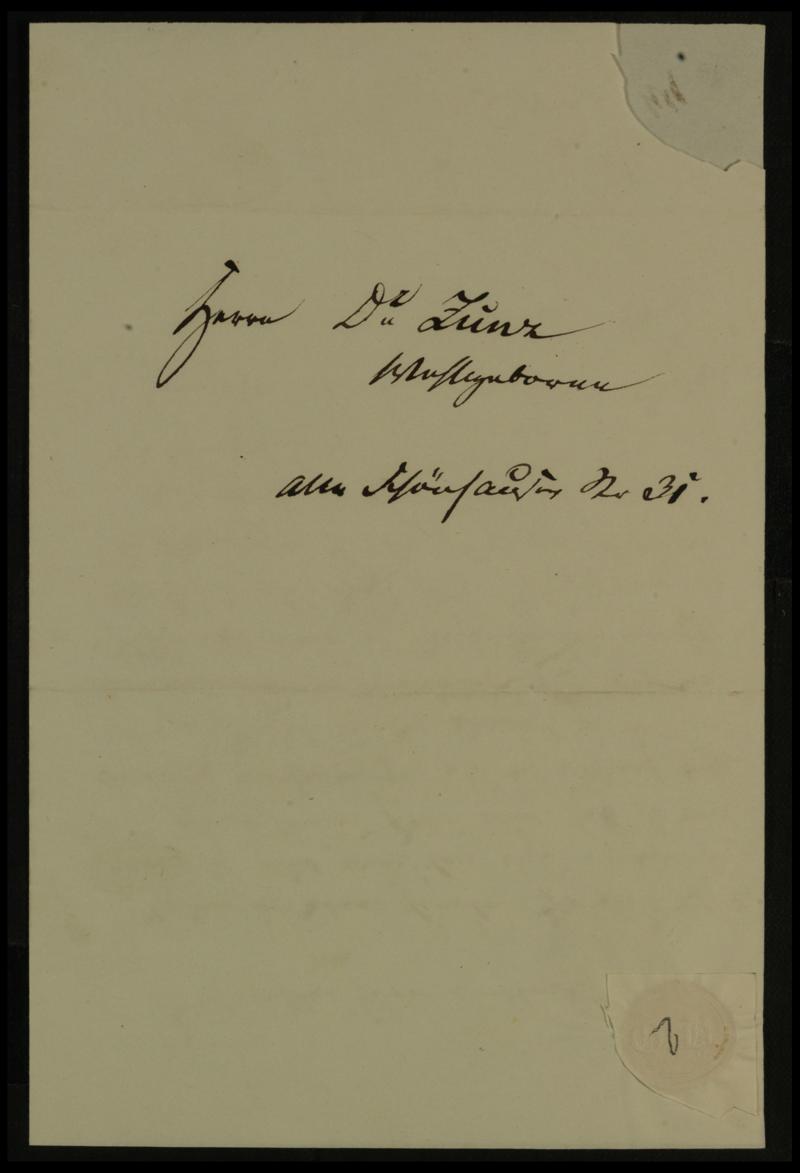 Herrn Dr Zunz
Wohlgeboren
alte Schönhauser Nr 31.